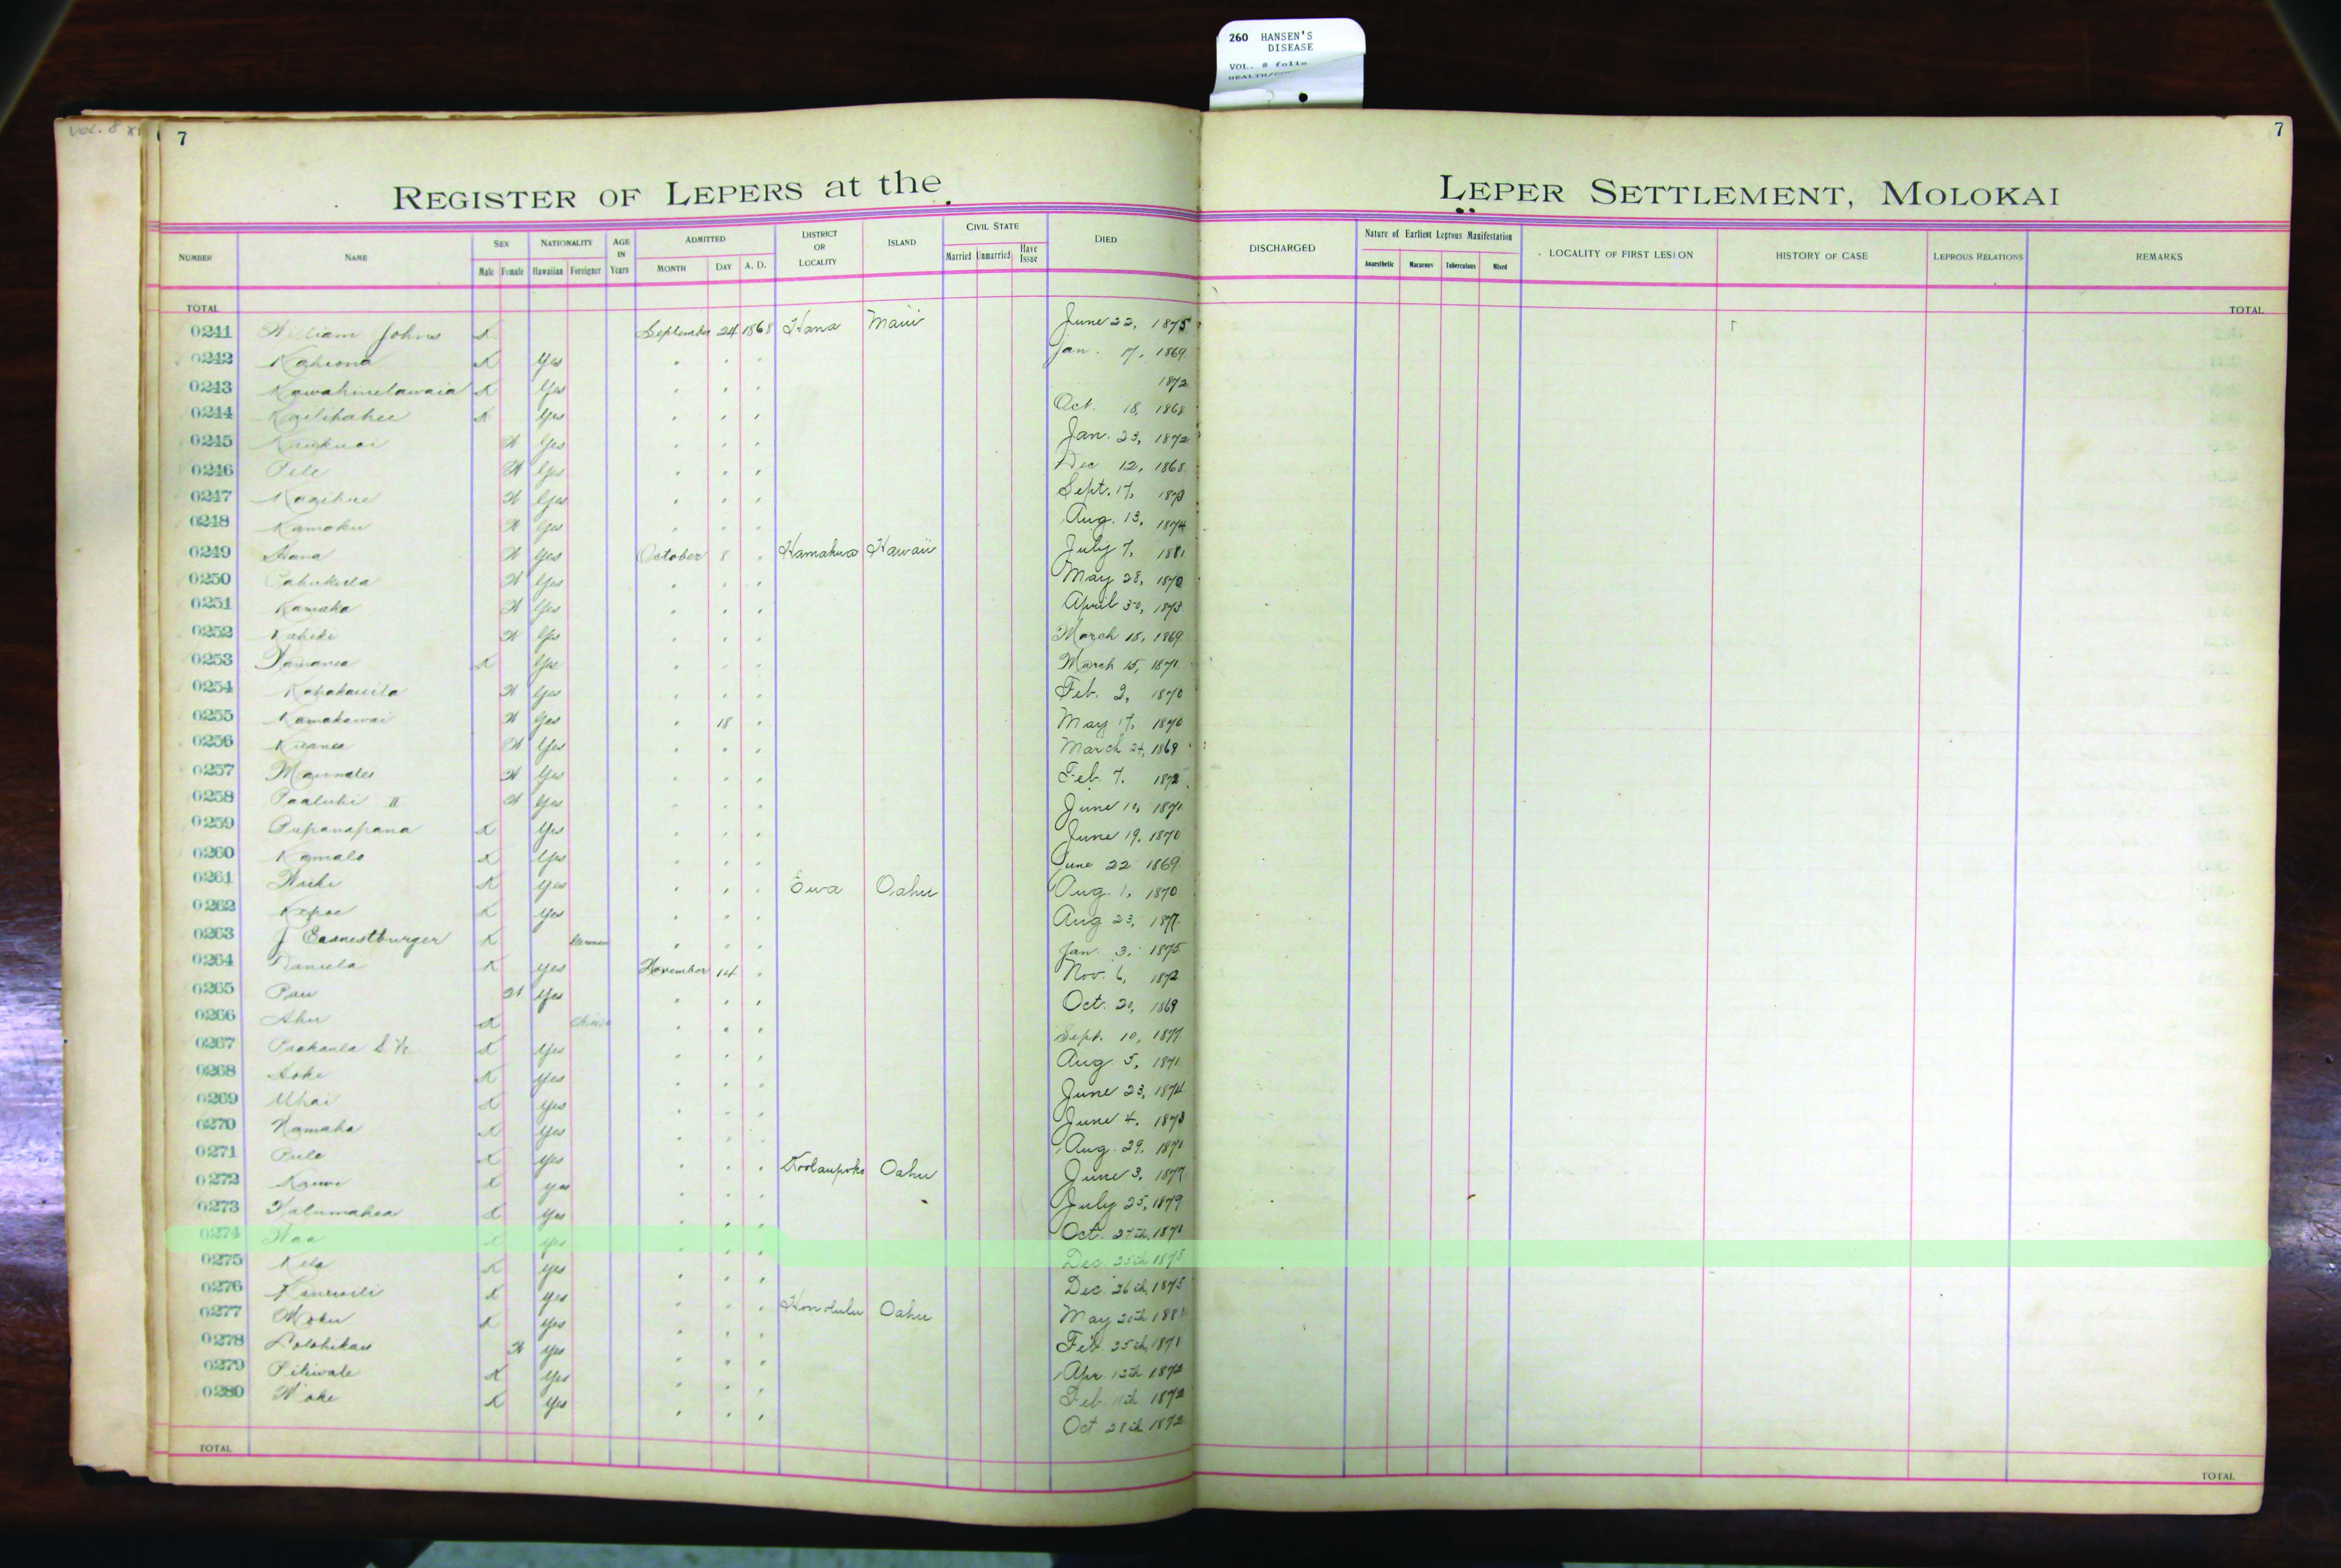 260 HANSEN'S
DISEASE
VOL. 8 folio
7
7
REGISTER OF LEPERS at the LEPER SETTLEMENT, MOLOKAI
NUMBER NAME SEX NATIONALITY AGE IN Years ADMITTED DISTRICT OR LOCALITY ISLAND CIVIL STATE DIED DISCHARGED Nature of Earliest Leprous Manifestation LOCALITY OF FIRST LESION HISTORY OF CASE LEPROUS RELATIONS REMARKS
Male Female Hawaiian Foreigner MONTH DAY A. D. Married Unmarried Have Issue Anaesthetic Macurous Tuberculous Mixed
TOTAL TOTAL
0241 William Johns X September 24 1868 Hana Maui June 22, 1875
0242 Kahiona X Yes " " " Jan. 17, 1869
0243 Kawahinelawaia X Yes " " " 1872
0244 X Yes " " " Oct. 18, 1868
0245 X Yes " " " Jan. 23, 1872
0246 Pele X Yes " " " Dec 12, 1868
0247 X Yes " " " Sept. 17,
0248 Kamoku X Yes " " " Aug. 13, 1874
0249 Hana X Yes October 8 " Hamakua Hawaii July 7, 1881
0250 X Yes " " " May 28, 1870
0251 Kamaka X Yes " " " April 30, 1873
0252 Kahiki X Yes " " " March 18, 1869
0253 X Yes " " " March 15, 1871
0254 Kapakauila X Yes " " " Feb. 2, 1870
0255 Kamakawai X Yes " 18 " May 17, 1870
0256 X Yes " " " March 24, 1869
0257 X Yes " " " Feb. 7, 1872
0258 Paaluhi II X Yes " " " June 10, 1871
0259 Pupanapana X Yes " " " June 19, 1870
0260 Kamalo X Yes " " " June 22 1869
0261 X Yes " " " Ewa Oahu Aug. 1, 1870
0262 Kepae X Yes " " " Aug 23, 1877
0263 J Earnestburger X German " " " Jan. 3, 1875
0264 Daniela X Yes November 14 " Nov. 6, 1872
0265 Pau X Yes " " " Oct. 20, 1869
0266 Ahu X Chinese " " " Sept. 10, 1877
0267 X Yes " " " Aug. 5, 1871
0268 X Yes " " " June 23, 1874
0269 Uhai X Yes " " " June 4, 1873
0270 X Yes " " " Aug. 29, 1871
0271 Pule X Yes " " " Koolaupoko Oahu June 3, 1877
0272 X Yes " " " July 25, 1879
0273 X Yes " " " Oct. 27th, 1871
0274 X Yes " " " Dec. 25th 1875
0275 Kela X Yes " " " Dec. 26th, 1875
0276 X Yes " " " Honolulu Oahu May 20th
0277 Moku X Yes " " " Feb. 25th, 1871
0278 Lolohikau X Yes " " " Apr. 13th 1872
0279 Pikiwale X Yes " " " Feb 11th 1872
0280 X Yes " " " Oct 28th 1872
TOTAL TOTAL